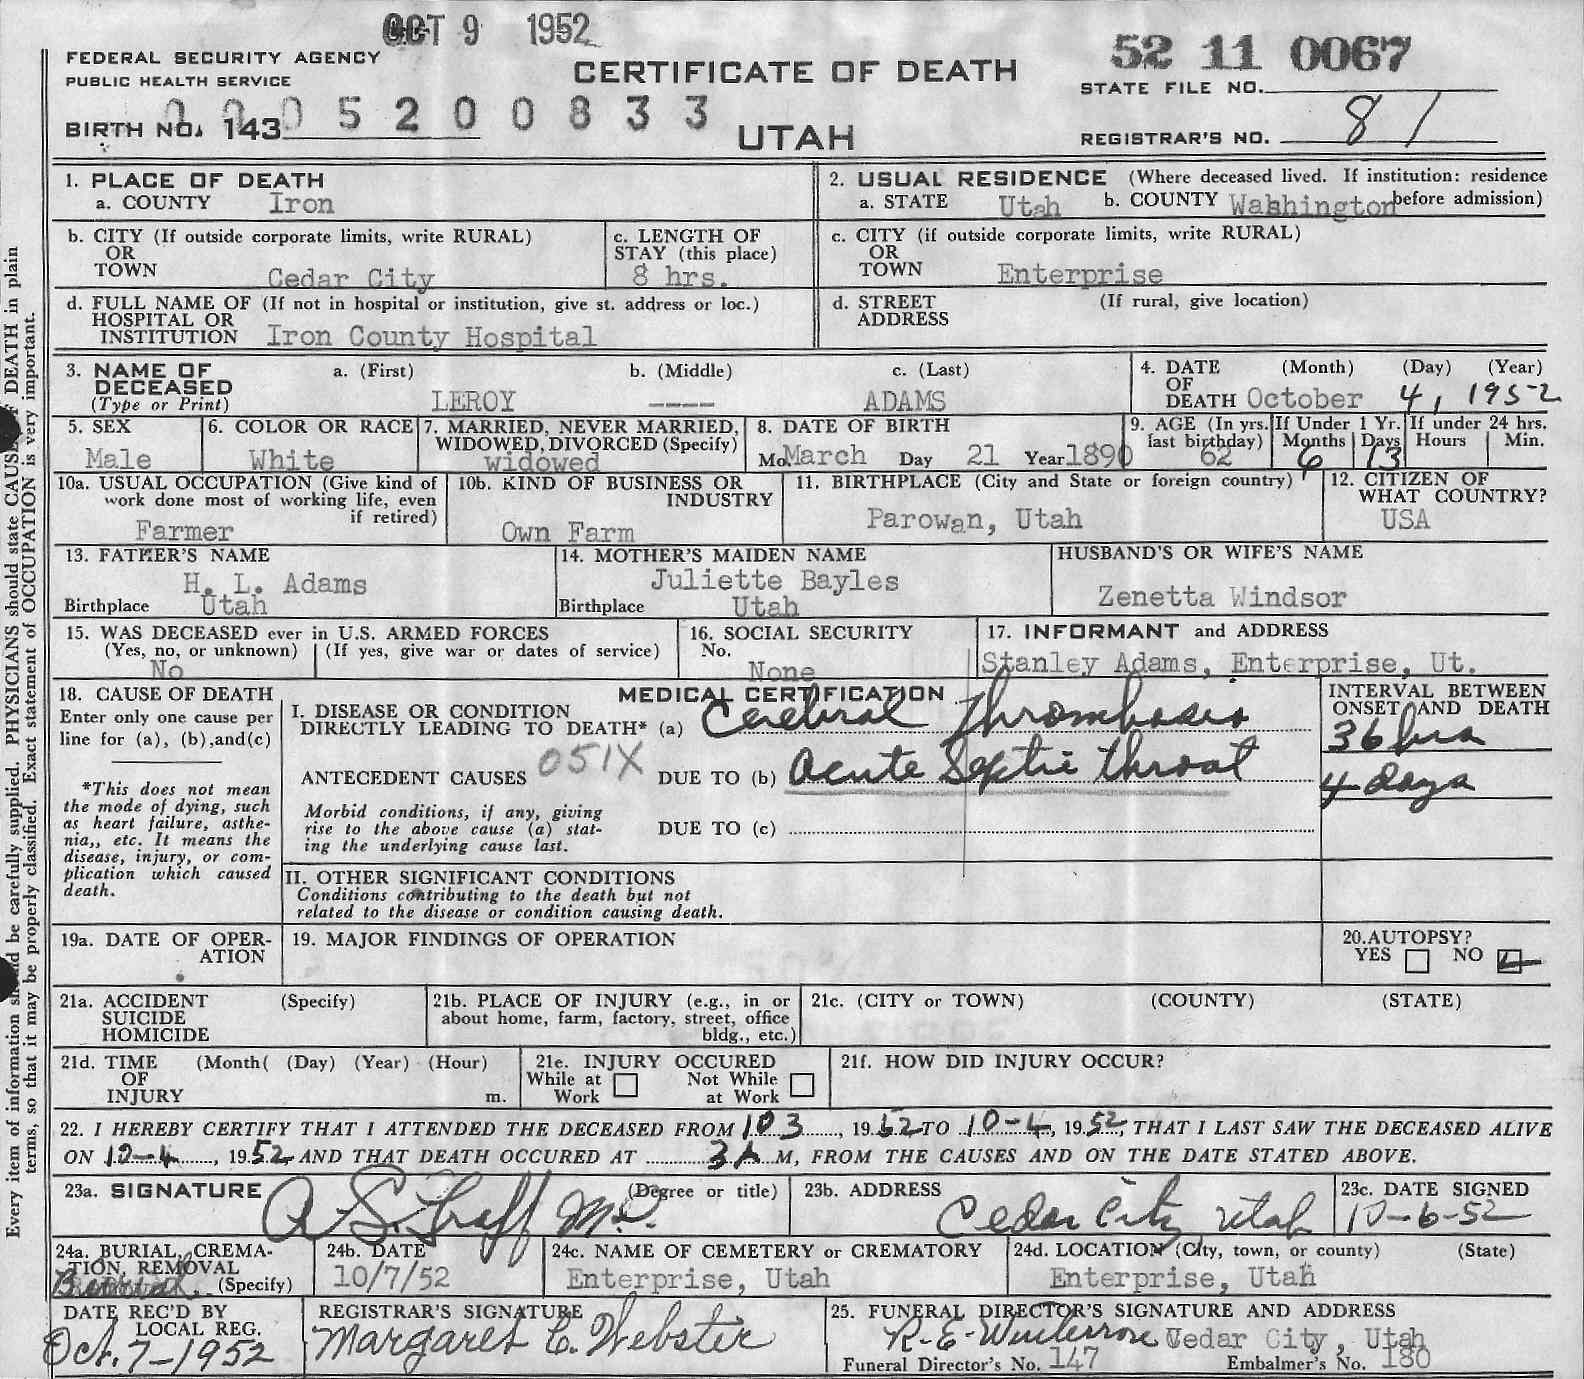 OCT 9 1952
FEDERAL SECURITY AGENCY
PUBLIC HEALTH SERVICE
CERTIFICATE OF DEATH
UTAH
52 11 0067
STATE FILE NO.
BIRTH NO. 143
5 2 0 0 8 3 3
REGISTRAR'S NO. 81
1. PLACE OF DEATH
a. COUNTY Iron
2. USUAL RESIDENCE (Where deceased lived. If institution: residence before admission)
a. STATE Utah b. COUNTY Washington
b. CITY (If outside corporate limits, write RURAL)
OR
TOWN Cedar City
c. LENGTH OF
STAY (this place)
8 hrs.
c. CITY (if outside corporate limits, write RURAL)
OR
TOWN Enterprise
d. FULL NAME OF (If not in hospital or institution, give st. address or loc.)
HOSPITAL OR
INSTITUTION Iron County Hospital
d. STREET (If rural, give location)
ADDRESS
3. NAME OF
DECEASED
(Type or Print)
a. (First) b. (Middle) c. (Last)
LEROY ---- ADAMS
4. DATE (Month) (Day) (Year)
OF
DEATH October 4, 1952
5. SEX
Male
6. COLOR OR RACE
White
7. MARRIED, NEVER MARRIED,
WIDOWED, DIVORCED (Specify)
widowed
8. DATE OF BIRTH
Mo. March Day 21 Year 1890
9. AGE (In yrs. last birthday) 62
If Under 1 Yr. Months 6 Days 13
If under 24 hrs. Hours Min.
10a. USUAL OCCUPATION (Give kind of
work done most of working life, even
if retired)
Farmer
10b. KIND OF BUSINESS OR
INDUSTRY
Own Farm
11. BIRTHPLACE (City and State or foreign country)
Parowan, Utah
12. CITIZEN OF
WHAT COUNTRY?
USA
13. FATHER'S NAME
H. L. Adams
Birthplace Utah
14. MOTHER'S MAIDEN NAME
Juliette Bayles
Birthplace Utah
HUSBAND'S OR WIFE'S NAME
Zenetta Windsor
15. WAS DECEASED ever in U.S. ARMED FORCES
(Yes, no, or unknown) (If yes, give war or dates of service)
No
16. SOCIAL SECURITY
No.
None
17. INFORMANT and ADDRESS
Stanley Adams, Enterprise, Ut.
18. CAUSE OF DEATH
Enter only one cause per
line for (a), (b), and (c)
*This does not mean
the mode of dying, such
as heart failure, asthe-
nia,, etc. It means the
disease, injury, or com-
plication which caused
death.
MEDICAL CERTIFICATION
I. DISEASE OR CONDITION
DIRECTLY LEADING TO DEATH* (a) Cerebral Thrombosis
ANTECEDENT CAUSES 051X DUE TO (b) Acute Septic throat
Morbid conditions, if any, giving
rise to the above cause (a) stat-
ing the underlying cause last.
DUE TO (c)
INTERVAL BETWEEN
ONSET AND DEATH
36 hrs
4 days
II. OTHER SIGNIFICANT CONDITIONS
Conditions contributing to the death but not
related to the disease or condition causing death.
19a. DATE OF OPER-
ATION
19. MAJOR FINDINGS OF OPERATION
20. AUTOPSY?
YES NO
21a. ACCIDENT (Specify)
SUICIDE
HOMICIDE
21b. PLACE OF INJURY (e.g., in or
about home, farm, factory, street, office
bldg., etc.)
21c. (CITY or TOWN) (COUNTY) (STATE)
21d. TIME (Month( (Day) (Year) (Hour)
OF
INJURY m.
21e. INJURY OCCURED
While at Work Not While at Work
21f. HOW DID INJURY OCCUR?
22. I HEREBY CERTIFY THAT I ATTENDED THE DECEASED FROM 10 3, 1952 TO 10-4, 1952, THAT I LAST SAW THE DECEASED ALIVE
ON 10-4, 1952 AND THAT DEATH OCCURED AT 3 A M, FROM THE CAUSES AND ON THE DATE STATED ABOVE.
23a. SIGNATURE (Degree or title)
M.D.
23b. ADDRESS
Cedar City Utah
23c. DATE SIGNED
10-6-52
24a. BURIAL, CREMA-
TION, REMOVAL
Burial (Specify)
24b. DATE
10/7/52
24c. NAME OF CEMETERY or CREMATORY
Enterprise, Utah
24d. LOCATION (City, town, or county) (State)
Enterprise, Utah
DATE REC'D BY
LOCAL REG.
Oct. 7-1952
REGISTRAR'S SIGNATURE
Margaret C. Webster
25. FUNERAL DIRECTOR'S SIGNATURE AND ADDRESS
Cedar City, Utah
Funeral Director's No. 147 Embalmer's No. 180
Every item of information should be carefully supplied. PHYSICIANS should state CAUSE OF DEATH in plain
terms, so that it may be properly classified. Exact statement of OCCUPATION is very important.